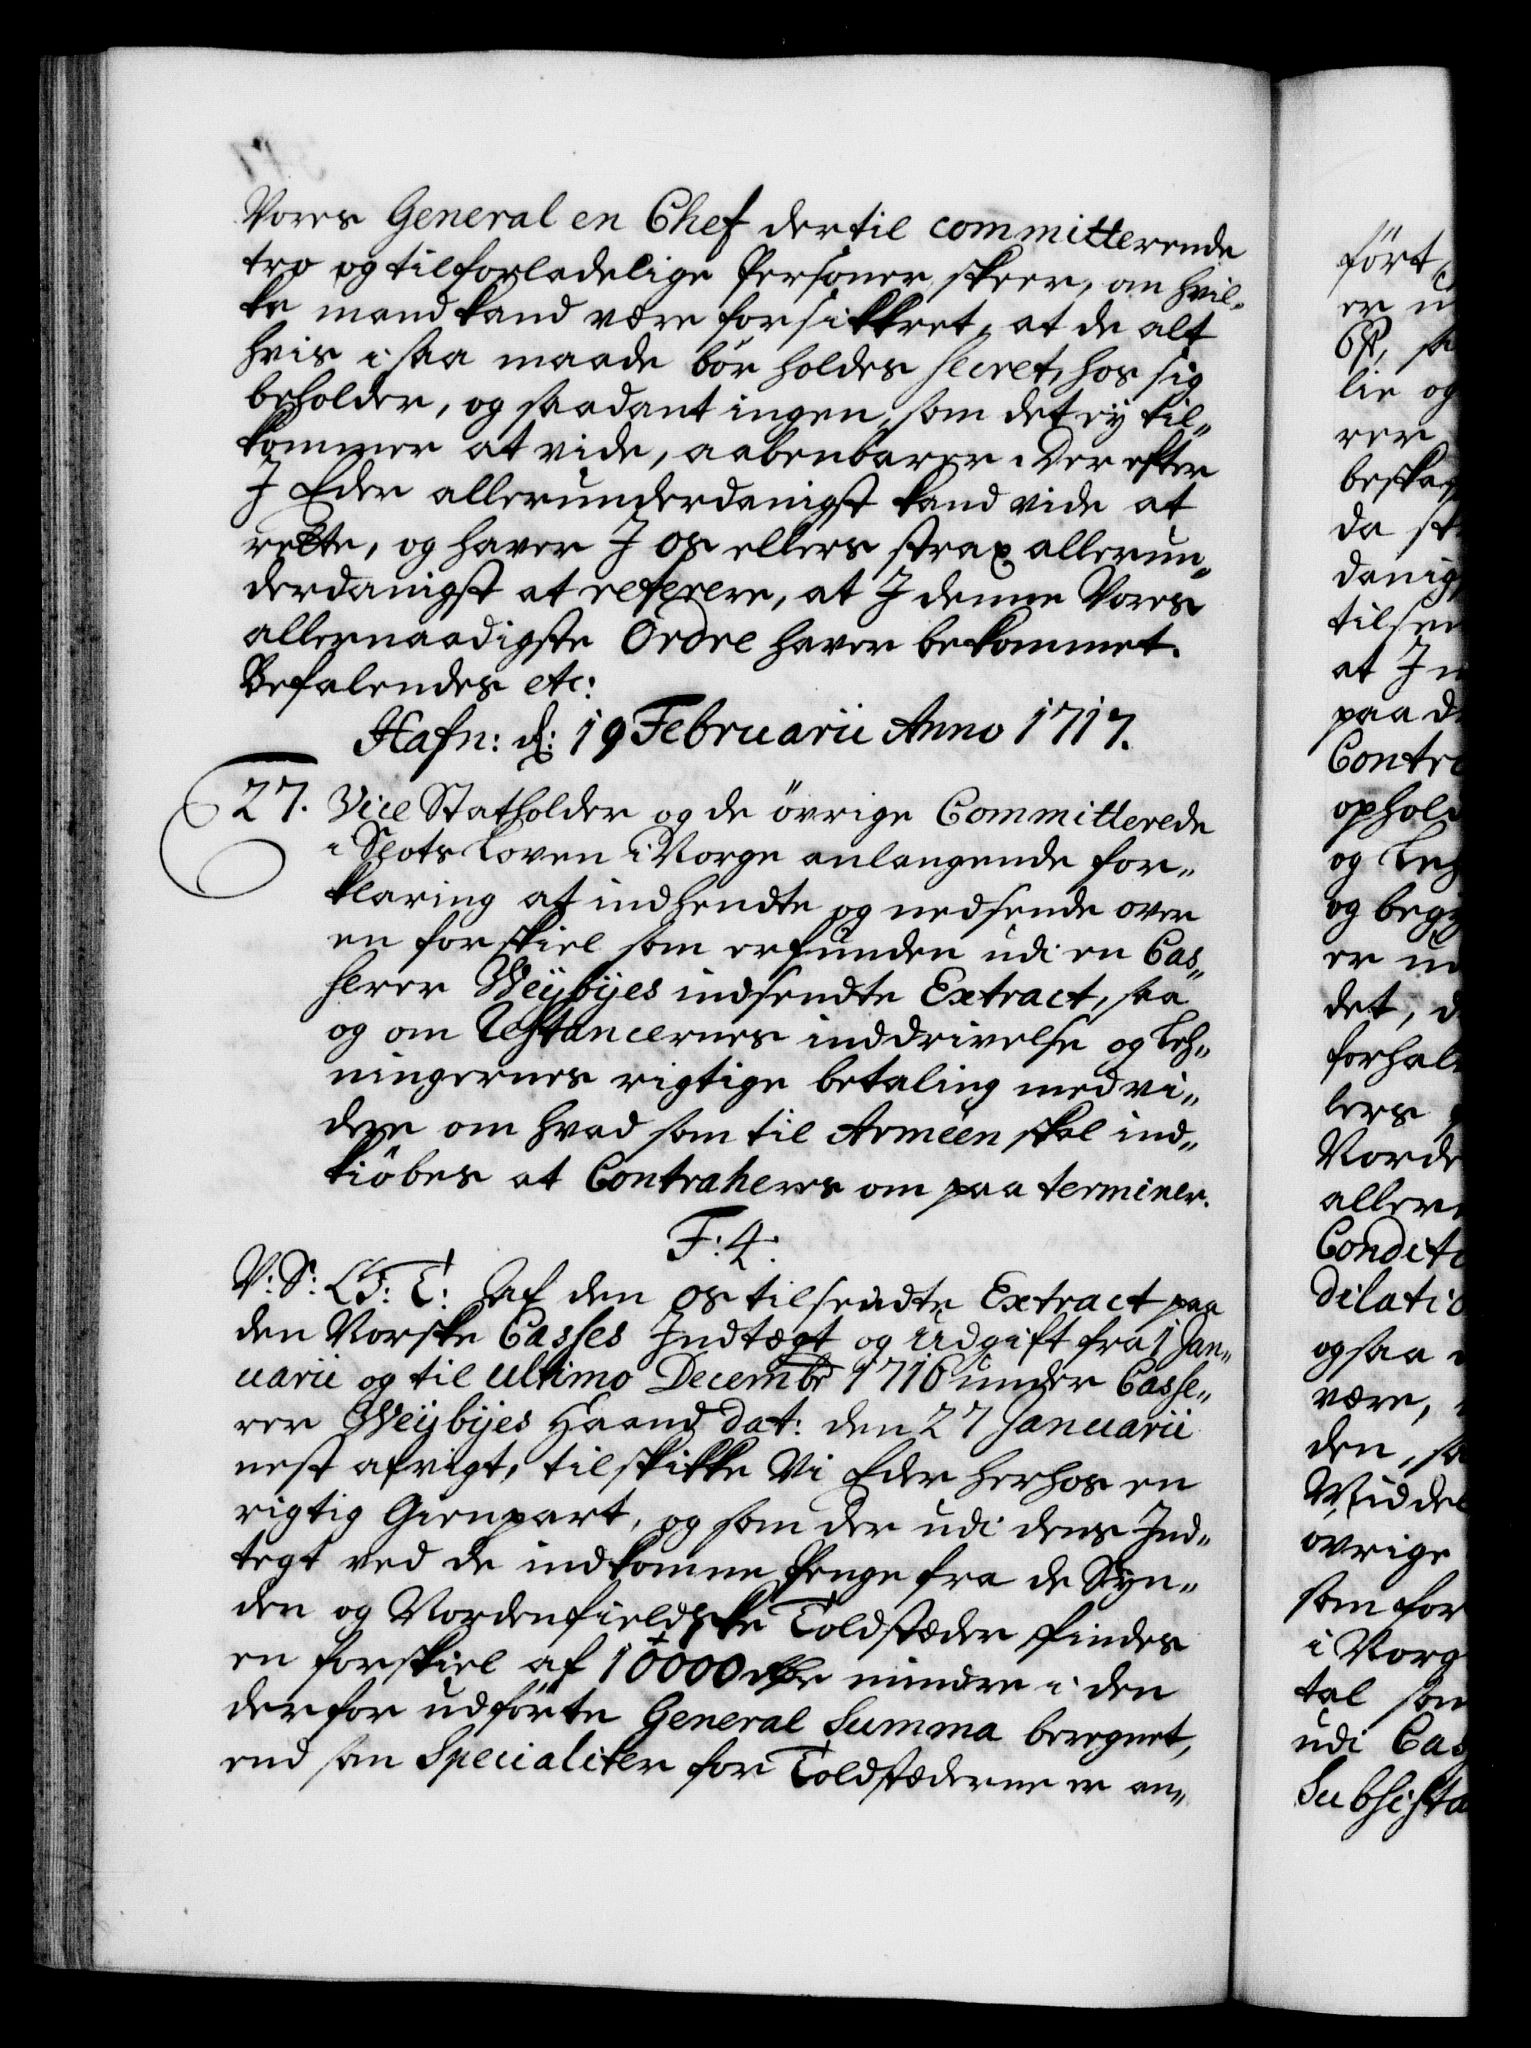 Vores General en Chef dertil committerende
tro og tilforladelige Personer, skeer, om hvil-
ke mand kand være forsikkret, at de alt
hvis i saa maade bör holdes secret, hos sig
beholder, og saadant ingen, som det ey til-
kommer at vide, aabenbarer. Der efter
I Eder allerunderdanigst kand vide at
rette, og haver I os ellers strax allerun-
derdanigst at referere, at I denne Vores
allernaadigste Ordre haver bekommet.
Befalendes etc:
Hafn: d: 19 Februarii Anno 1717.
27. Vice Statholder og de övrige Committerede
i Slots Loven i Norge anlangende for-
klaring at indhendte og nedsende over
en forskiel som erfunden udi en Cas-
serer Weybyes indsendte Extract, saa
og om Restancernes inddrivelse og Leh-
ningernes rigtige betaling med vi-
dere om hvad som til Armeen skal ind-
kiöbes at Contraheres om paa terminer.
F: 4.
V: S: G: T: Af den os tilsendte Extract paa
den Norske Casses Indtægt og Udgift fra 1 Jan-
uarii og til ultimo Decembr 1716 under Casse-
rer Weybyes Haand dat: den 27 Januarii
nest afvigt, tilskikke Vi Eder herhos en
rigtig Gienpart, og som der udi dens Ind-
tegt ved de indkomne Penge fra de Syn-
den og Nordenfieldske Toldstæder findes
en forskiel af 10000 rdr mindre i den
derfor udförte General Summa beregnet,
end som Specialiter for Toldstæderne er an-
fört,
er
lie og
rer
da
danig
tilsen
at I
paa d
Contra
ophold
og Leh
og beg
er
det, d
forhal
lers
Norde
aller
Condit
dilatio
ogsaa
være,
den, sa
Middel
övrige
som for
i Norg
tal som
udi Cas
Subsista